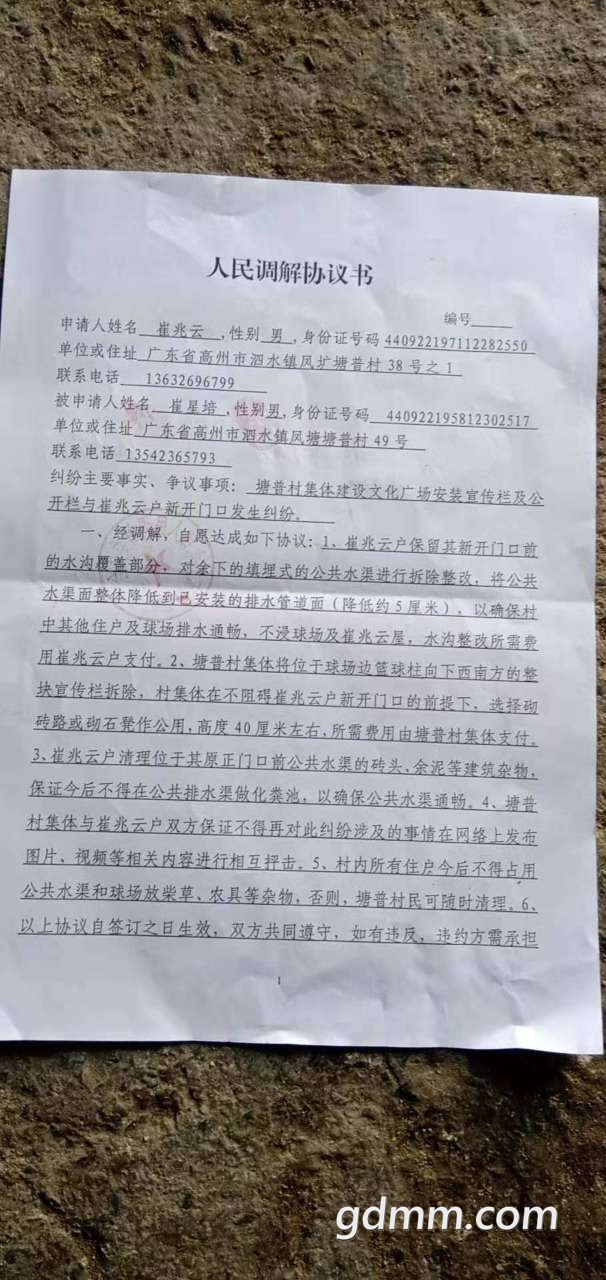 人民调解协议书
编号
申请人姓名 崔兆云 ,性别 男 ,身份证号码 440922197112282550
单位或住址 广东省高州市泗水镇凤圹塘普村 38 号之 1
联系电话 13632696799
被申请人姓名 崔星培 ,性别男,身份证号码 440922195812302517
单位或住址 广东省高州市泗水镇凤塘塘普村 49 号
联系电话 13542365793
纠纷主要事实、争议事项: 塘普村集体建设文化广场安装宣传栏及公
开栏与崔兆云户新开门口发生纠纷。
一、经调解,自愿达成如下协议:1、崔兆云户保留其新开门口前
的水沟覆盖部分,对余下的填埋式的公共水渠进行拆除整改,将公共
水渠面整体降低到已安装的排水管道面(降低约 5 厘米),以确保村
中其他住户及球场排水通畅,不浸球场及崔兆云屋,水沟整改所需费
用崔兆云户支付。2、塘普村集体将位于球场边篮球柱向下西南方的整
块宣传栏拆除,村集体在不阻碍崔兆云户新开门口的前提下,选择砌
砖路或砌石凳作公用,高度 40 厘米左右,所需费用由塘普村集体支付。
3、崔兆云户清理位于其原正门口前公共水渠的砖头、余泥等建筑杂物,
保证今后不得在公共排水渠做化粪池,以确保公共水渠通畅。4、塘普
村集体与崔兆云户双方保证不得再对此纠纷涉及的事情在网络上发布
图片、视频等相关内容进行相互抨击。5、村内所有住户今后不得占用
公共水渠和球场放柴草、农具等杂物,否则,塘普村民可随时清理。6、
以上协议自签订之日生效,双方共同遵守,如有违反,违约方需承担
1
gdmm.com